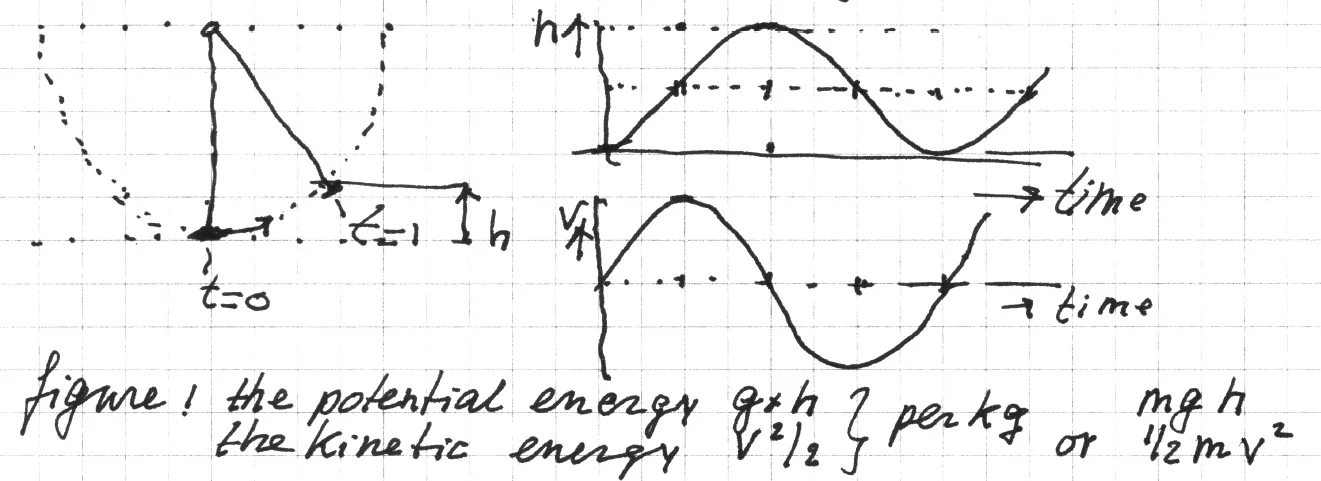 h↑
t=1
h
t=0
→ time
V↑
→ time
figure! the potential energy g*h } per kg or mgh
the kinetic energy V²/2 } per kg or 1/2mv²